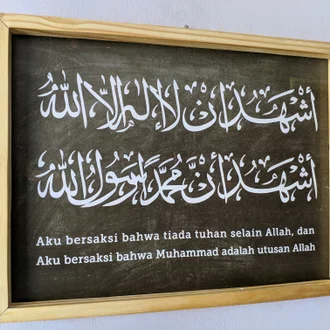 أشهد أن لا إله إلا الله
أشهد أن محمد رسول الله
Aku bersaksi bahwa tiada tuhan selain Allah, dan
Aku bersaksi bahwa Muhammad adalah utusan Allah